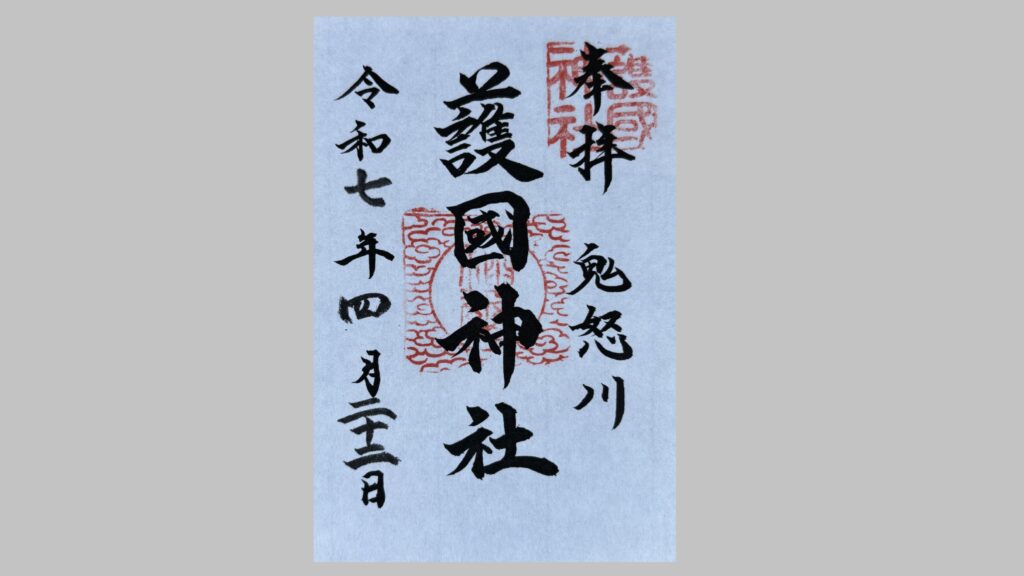 奉拝 鬼怒川
護國神社
令和七年四月二十二日
護國
神社